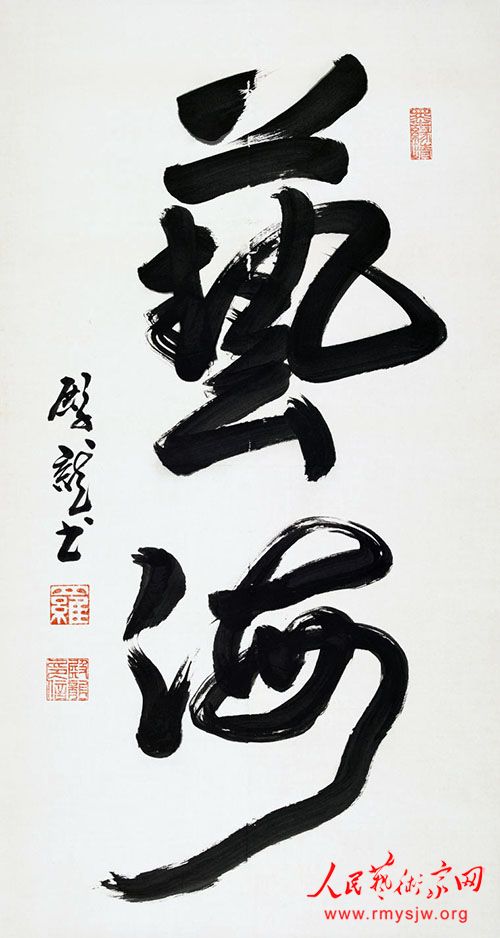 藝海
殿龍书
羅
人民藝術家网
www.rmysjw.org